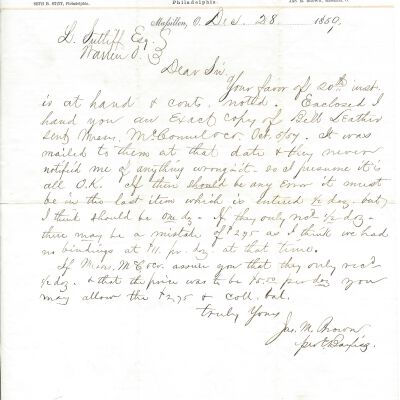 SETH B. STITT, Philadelphia.
Philadelphia.
Massillon, O. Dec. 28 1860,
L. Sutliff Esq
Warren O.
Dear Sir
Your favor of 20th inst.
is at hand & cont. noted. Enclosed I
hand you an Exact copy of Bell Leather
sent Messrs. McConnel & co. Oct. 5/59. It was
mailed to them at that date & they never
notified me of anything wrong in it. so I presume it is
all O.K. If there should be any error it must
be in the last item which is entered ½ doz. but
I think should be one doz - If they only rec'd ½ doz -
there may be a mistake of $2.75 as I think we had
no bindings at $11. pr. doz at that time.
If Messrs. McC & co. assure you that they only rec'd
½ doz. & that the price was to be $5.50 per doz you
may allow the $2.75 & coll. bal.
Truly Yours
Jas. M. Brown